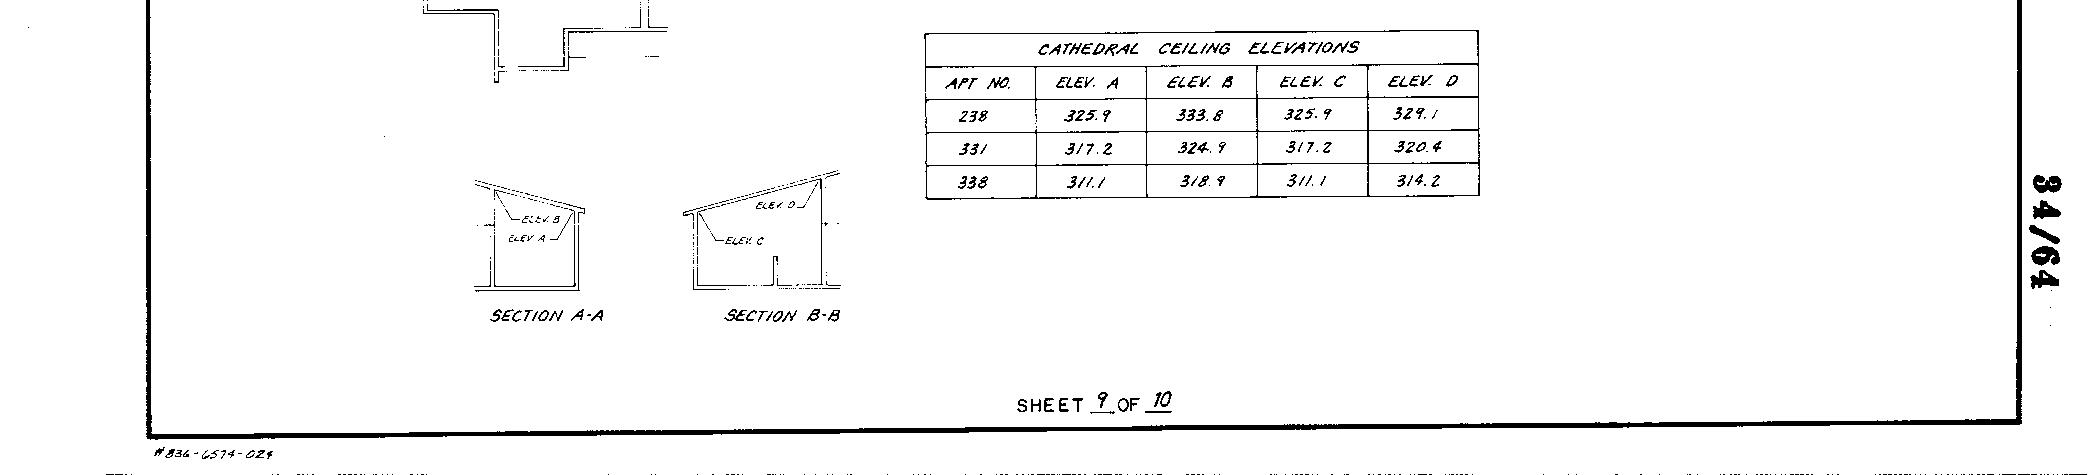 CATHEDRAL CEILING ELEVATIONS
APT NO. ELEV. A ELEV. B ELEV. C ELEV. D
238 325.9 333.8 325.9 329.1
331 317.2 324.9 317.2 320.4
338 311.1 318.9 311.1 314.2
ELEV. B
ELEV A
ELEV. D
ELEV. C
SECTION A-A
SECTION B-B
SHEET 9 OF 10
#836-6574-024
34/64